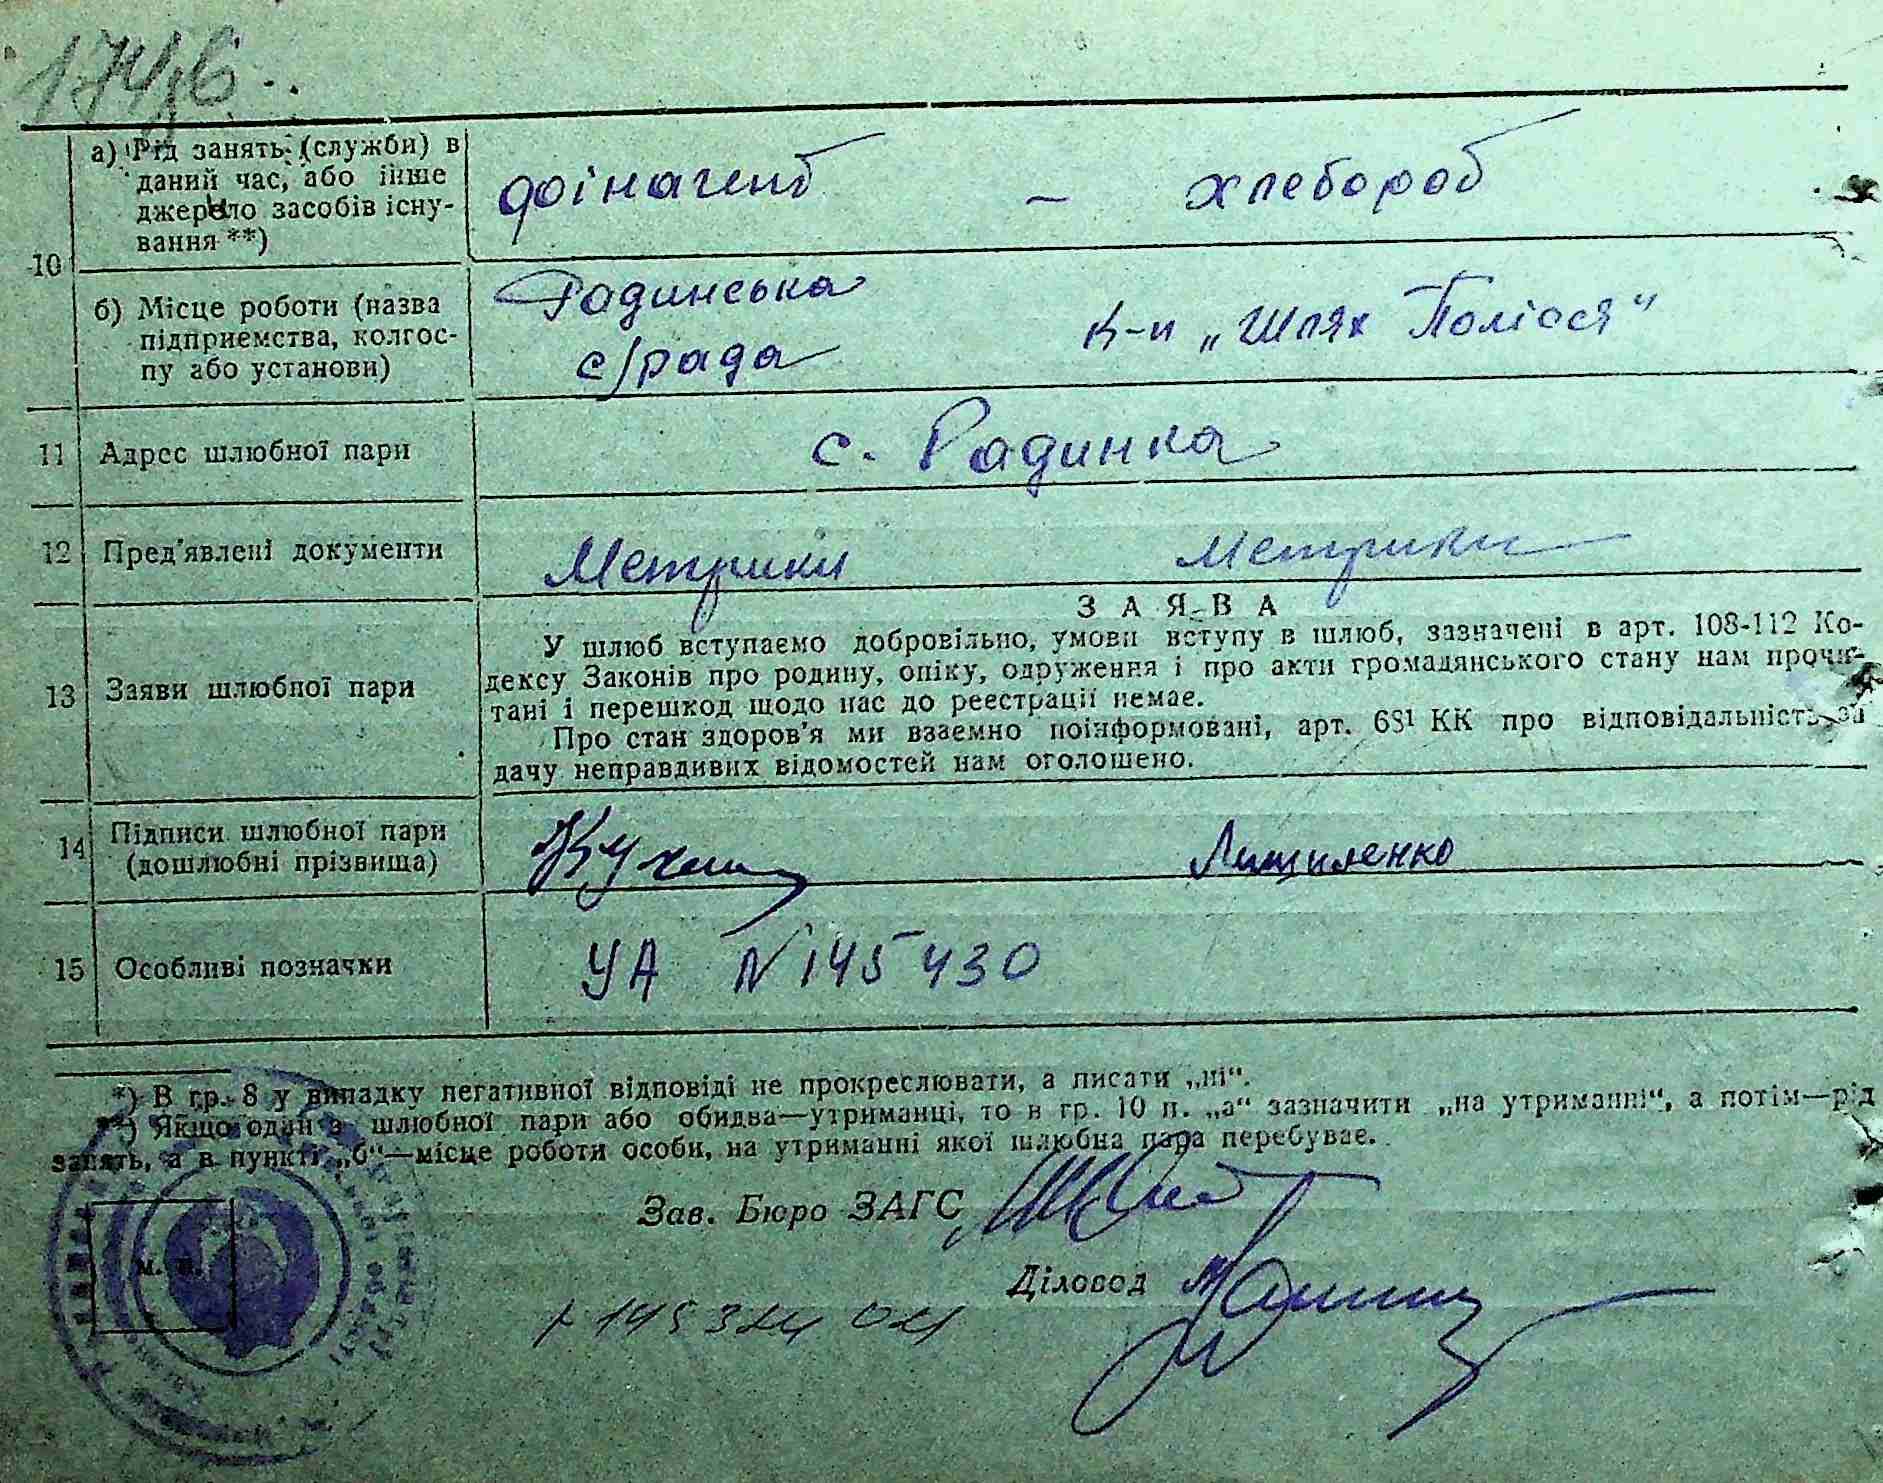 174зв.
10
а) Рід занять (служби) в
даний час, або інше
джерело засобів існу-
вання **)
фінагент – хлебороб
б) Місце роботи (назва
підприємства, колгос-
пу або установи)
Радинська
с/рада
к-п „Шлях Полісся“
11 Адрес шлюбної пари
с. Радинка
12 Пред'явлені документи
Метрики Метрики
13 Заяви шлюбної пари
ЗАЯВА
У шлюб вступаємо добровільно, умови вступу в шлюб, зазначені в арт. 108-112 Ко-
дексу Законів про родину, опіку, одруження і про акти громадянського стану нам прочи-
тані і перешкод щодо нас до реестрації немає.
Про стан здоров'я ми взаємно поінформовані, арт. 68¹ КК про відповідальність за
дачу неправдивих відомостей нам оголошено.
14 Підписи шлюбної пари
(дошлюбні прізвища)
15 Особливі позначки
УА N 145430
*) В гр. 8 у випадку негативної відповіді не прокреслювати, а писати „ні“.
**) Якщо один з шлюбної пари або обидва—утриманці, то в гр. 10 п. „а“ зазначити „на утриманні“, а потім—рід
занять, а в пункті „б“—місце роботи особи, на утриманні якої шлюбна пара перебуває.
Зав. Бюро ЗАГС
м. п.
Діловод